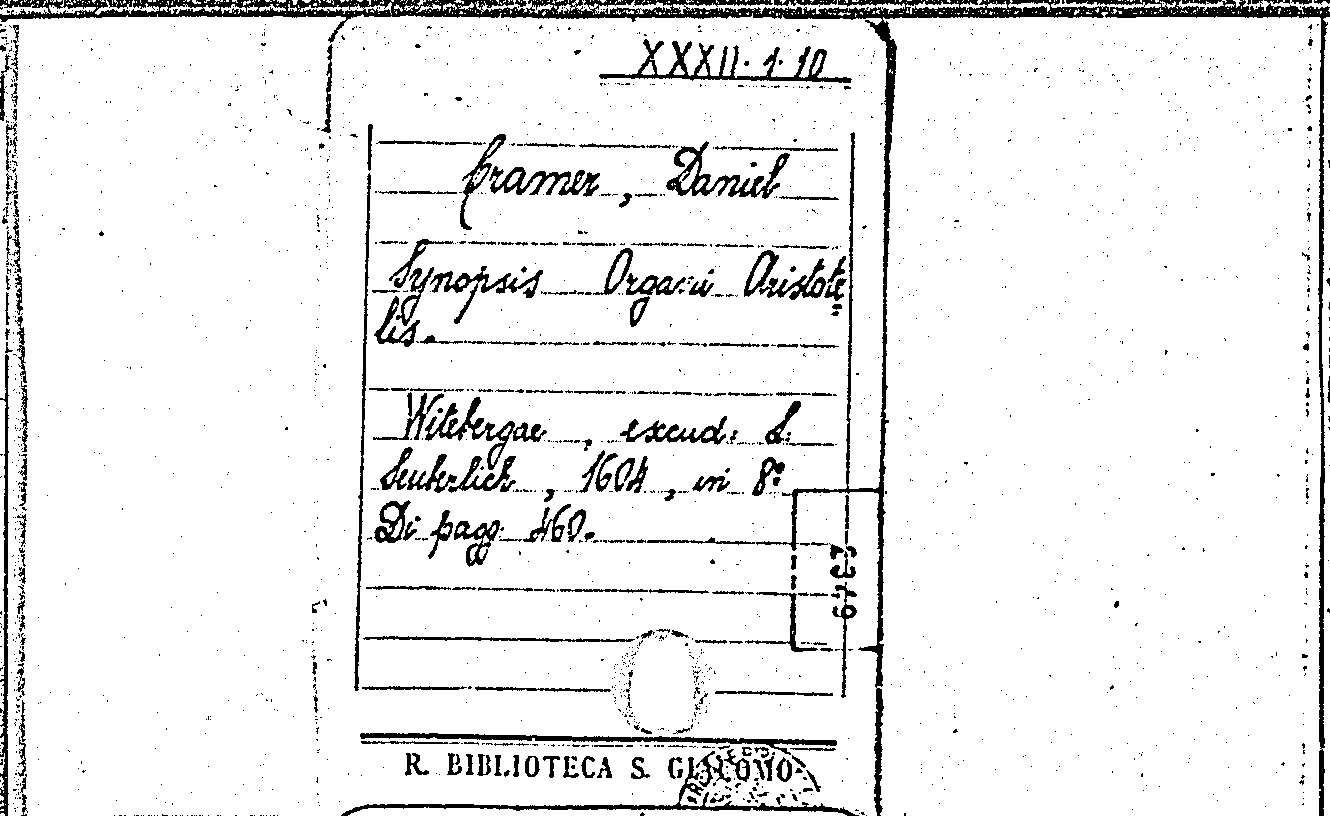 XXXII. 1. 10
Cramer, Daniel
Synopsis Organi Aristote
lis.
Witebergae, excud. S.
Seuberlich, 1604, in 8º
Di pagg. 460.
R. BIBLIOTECA S. GIACOMO